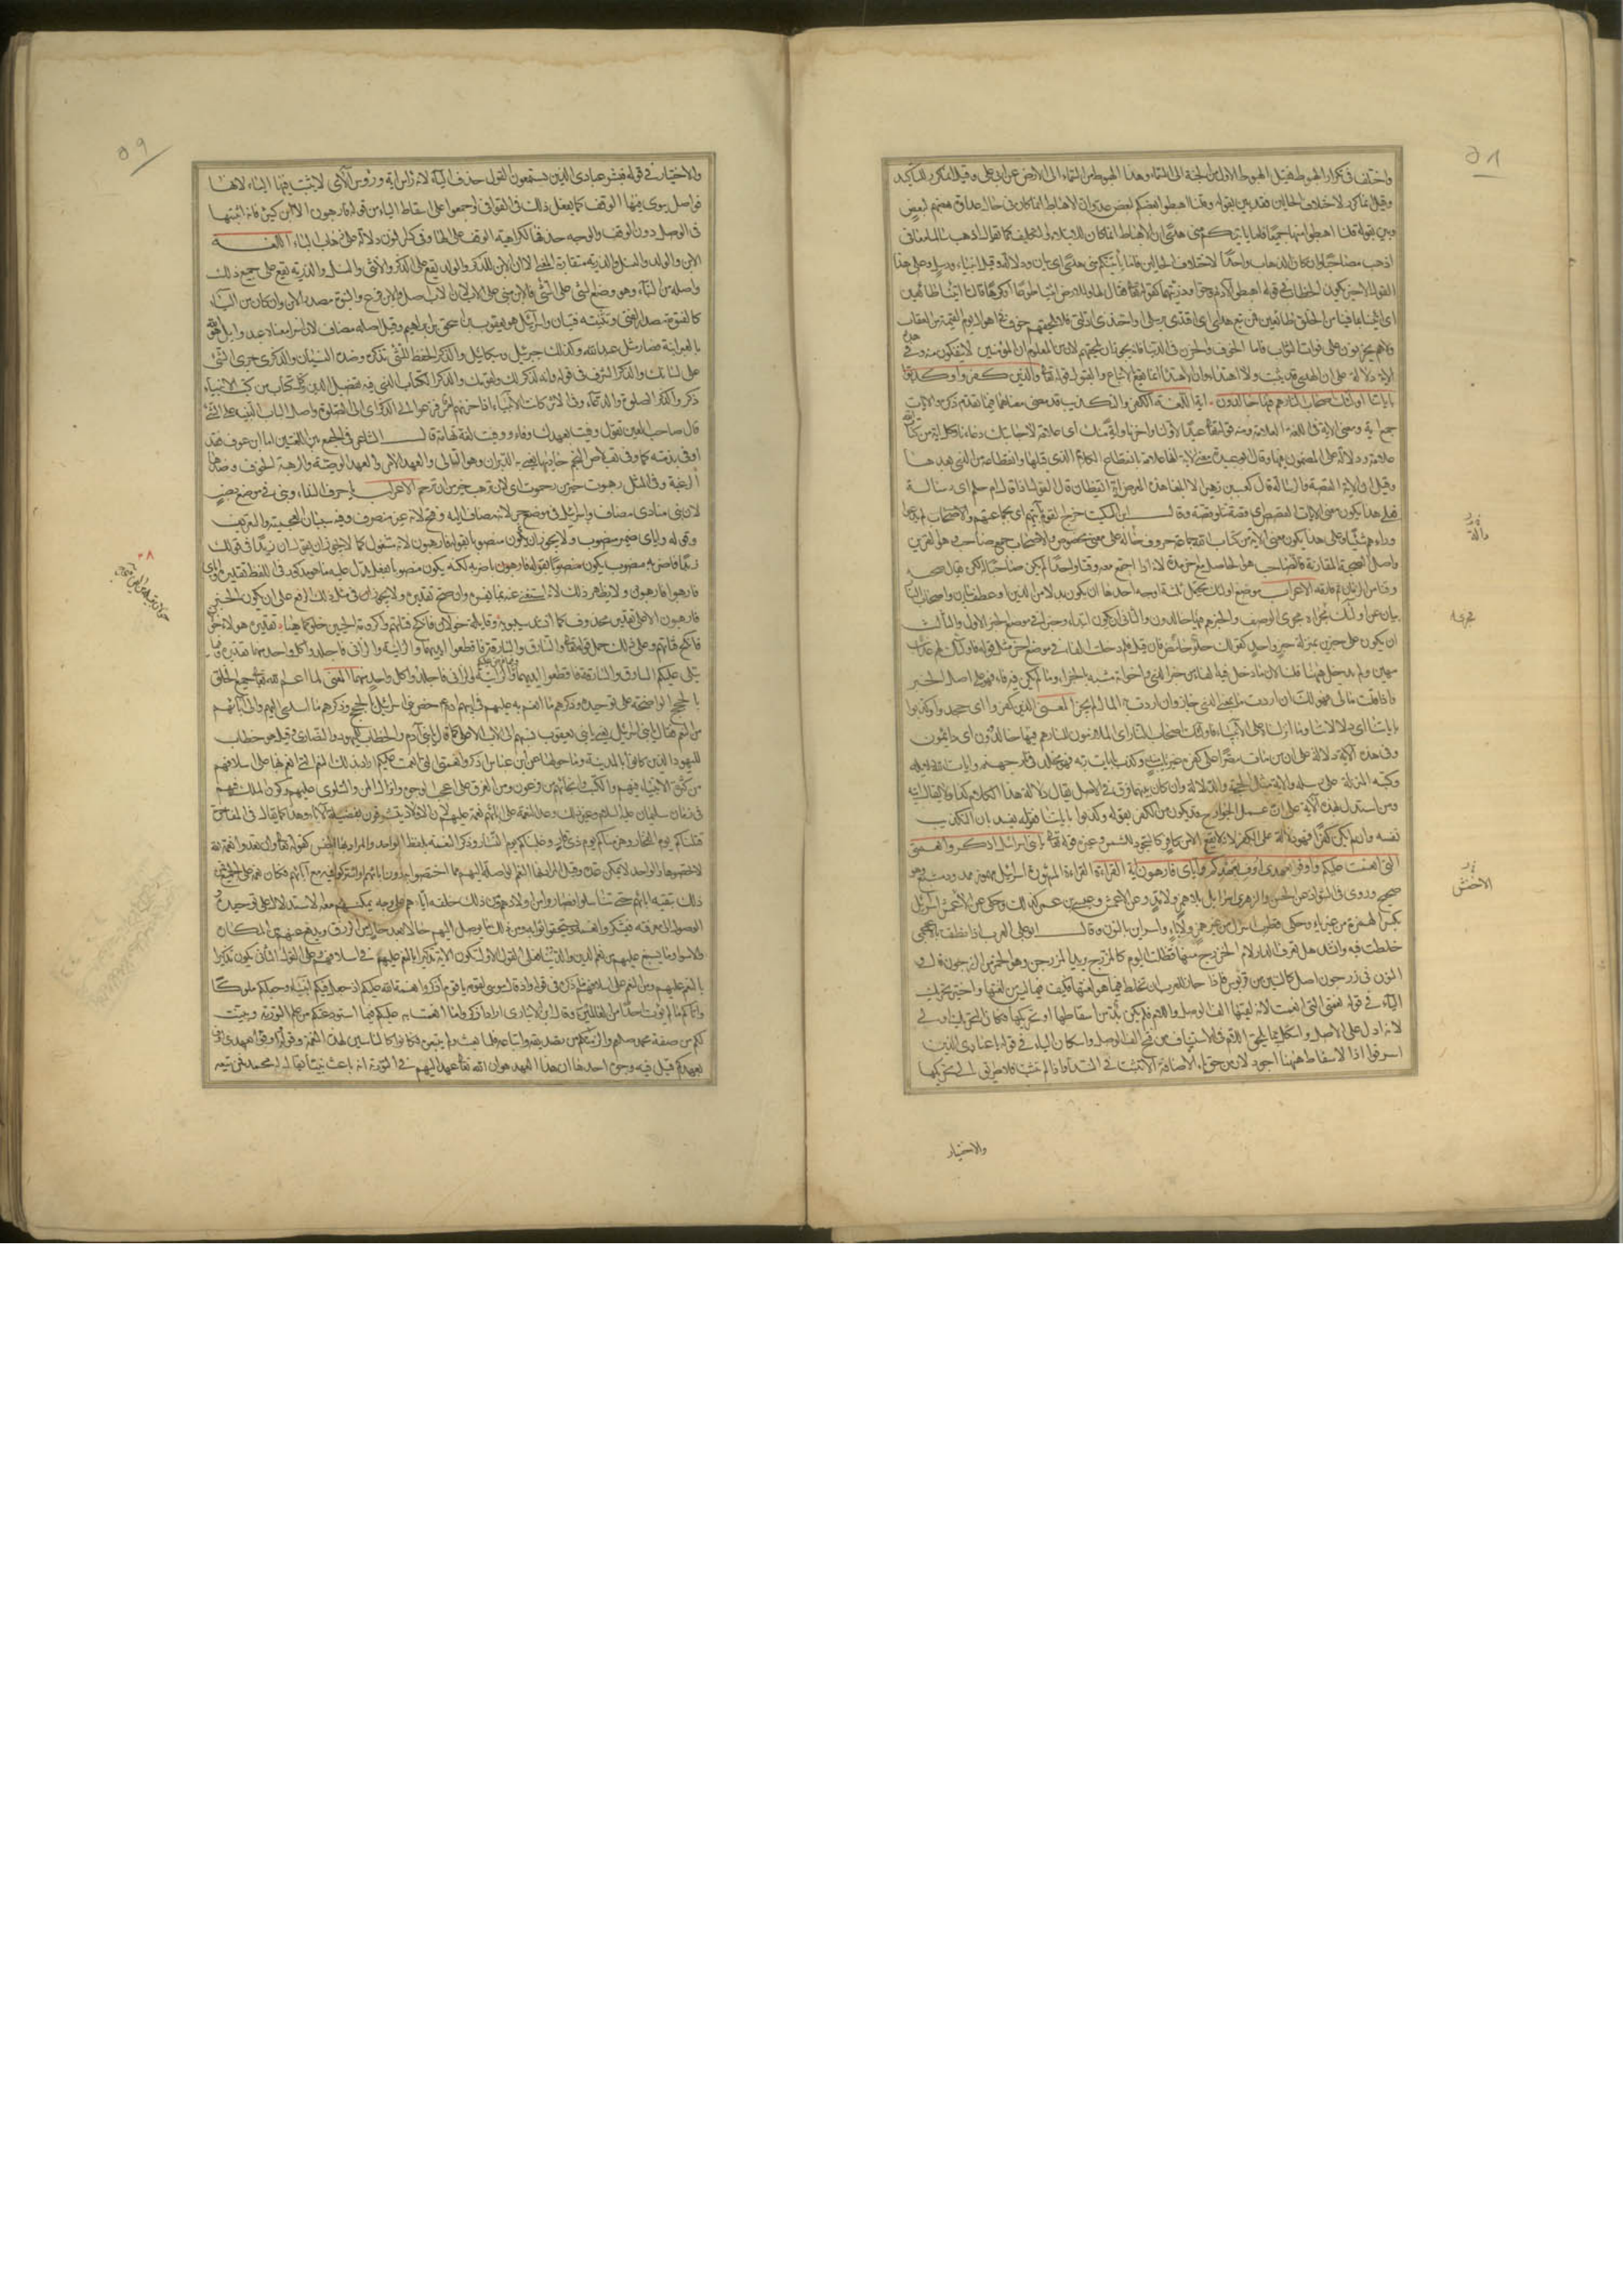 واختلف في تكرار الهبوط فقيل الهبوط الاول من الجنة الى السماء وهذا الهبوط من السماء الى الارض عن ابي علي وقيل المكرر للتأكيد
وقيل انما كرر لاختلاف الحالين فقد بين بقوله وقلنا اهبطوا بعضكم لبعض عدو ان الاهباط انما كان في حال عداوة بعضهم لبعض
وبين بقوله قلنا اهبطوا منها جميعا فاما يأتينكم مني هدى ان الاهباط انما كان للابتلاء والتكليف كما تقول اذهب سالما معافى
اذهب مصاحبا وان كان الذهاب واحدا لاختلاف الحالين فاما يأتينكم مني هدى اي بيان ودلالة وقيل انبياء ورسل وعلى هذا
القول الاخير يكون الخطاب في قوله اهبطوا لآدم وحوا وذريتهما كقوله تعالى فقال لها وللارض ائتيا طوعا او كرها قالتا اتينا طائعين
اي اتينا بما فينا من الخلق طائعين فمن تبع هداي اي اقتدى برسلي واحتذى ادلتي فلا يلحقهم خوف من اهوال يوم القيمة من العقاب
ولا هم يحزنون على فوات الثواب فاما الخوف والحزن في الدنيا فانه يجوز ان يلحقهم لان من المعلوم ان المؤمنين لا ينفكون منه وفي هذه
الاية دلالة على ان الهدى قد يثبت ولا اهتداء وان الاهتداء انما يقع بالاتباع والقبول قوله تعالى والذين كفروا وكذبوا
باياتنا اولئك اصحاب النار هم فيها خالدون اية اللغة الكفر والتكذيب قد مضى معناهما فيما تقدم ذكره والايات
جمع اية ومعنى الاية في اللغة العلامة ومنه قوله تعالى عيدا لاولنا واخرنا واية منك اي علامة لاجابتك دعاءنا وكل اية من كتاب الله
علامة ودلالة على المضمون فيها وقال ابو عبيدة معنى الاية انها علامة لانقطاع الكلام الذي قبلها وانقطاعه من الذي بعدها
وقيل ان الاية القصة والرسالة قال كعب بن زهير الا ابلغا هذا المعرض اية ايقظان قال القول اذ قال ام حلم اي رسالة
فعلى هذا يكون معنى الايات القصص اي قصة تتلو قصة وقال ابن السكيت خرج القوم بآيتهم اي بجماعتهم
وعلى هذا يكون معنى الاية من كتاب الله جماعة حروف دالة على معنى مخصوص والاصحاب جمع صاحب وهو القرين
واصل الصحبة المقارنة فالصاحب هو الحاصل مع اخر مدة لانه اذا اجتمع معه وقتا واحدا لم يكن صاحبا له لكن يقال صحبه
وقتا من الزمان ثم فارقه الاعراب موضع اولئك يحتمل ثلثة اوجه احدها ان يكون بدلا من الذين او عطف بيان واصحاب النار
بيان عن اولئك مجراه مجرى الوصف والخبر هم فيها خالدون والثاني ان يكون ابتداء وخبرا في موضع الخبر الاول والثالث
ان يكون على خبرين بمنزلة خبر واحد كقولك حلو حامض فان قيل فلم دخلت الفاء في موضع اخر مثل قوله فاولئك لهم عذاب
مهين ولم يدخل ههنا قلنا لان ما دخل فيه الفاء من خبر الذي واخواته مشبه بالجزاء وما لم يكن فيه فاء فهو على اصل الخبر
واذا قلت مالي فهو لك ان اردت ما بمعنى الذي جاز وان اردت به المال لم يجز المعنى الذين كفروا اي جحدوا وكذبوا
باياتنا اي دلالاتنا وما انزلناه على الانبياء فاولئك اصحاب النار اي الملازمون للنار هم فيها خالدون اي دائمون
وفي هذه الاية دلالة على ان من مات مصرا على كفره غير تائب منه وكذب بايات ربه فهو مخلد في نار جهنم وايات الله دلائله
وكتبه المنزلة على رسله والاية مثل الحجة والدلالة وان كان بينهما فرق في الاصل يقال دلالة هذا الكلام كذا ولا يقال ايته
ومن استدل بهذه الآية على ان عمل الجوارح قد يكون من الكفر بقوله وكذبوا باياتنا فقوله يفسد بان التكذيب
نفسه وان لم يكن كفرا فهو دلالة على الكفر لانه لا يقع الا من كافر كالسجود للشمس وغيره قوله تعالى يا بني اسرائيل اذكروا نعمتي
التي انعمت عليكم واوفوا بعهدي اوف بعهدكم واياي فارهبون اية القراءة القراءة المشهورة اسرائيل مهموز ممدود مشبع وهو
صحيح وروي في الشواذ عن الحسن والزهري اسرايل بلا همز ولا مد وعن الاعمش وعيسى بن عمر كذلك وحكي عن الاخفش اسرائل
بكسر الهمزة من غير ياء وحكى قطرب اسرال من غير همز ولا ياء واسراين بالنون وقال ابو علي العرب اذا نطقت بالاعجمي
خلطت فيه وانشد هل تعرف الدار لام الخزرج منها فظلت اليوم كالمزرج يريد المزرجن وهو الخمر من الزرجون قال
النون في زرجون اصل كالسين من قربوس فاذا جاز للعرب ان تخلط فيما هو من لغتها فكيف فيما ليس من لغتها واختير تحريك
الياء في قوله نعمتي التي انعمت لانه لقيتها الف الوصل واللام فلم يكن بد من اسقاطها او تحريكها فكان التحريك اولى
لانه ادل على الاصل واشكل بما يلحق اللام في الاستيناف من فتح الف الوصل واسكان الياء في قوله يا عبادي الذين
اسرفوا اذ الاسقاط ههنا اجود لان من حق ياء الاضافة الا تثبت في النداء واذا لم تثبت فلا طريق الى تحريكها
والاختيار
الاخفش
٥٨
والاختيار في قوله فبشر عبادي الذين يستمعون القول حذف الياء لانه رأس اية ورؤس الآي لا يثبت فيها الياء لانها
فواصل ينوى فيها الوقف كما يفعل ذلك في القوافي واجمعوا على اسقاط الياء من قوله فارهبون الا ابن كثير فانه اثبتها
في الوصل دون الوقف والوجه حذفها لكراهية الوقف على الياء وفي كسر النون دلالة على ذهاب الياء اللغة
الابن والولد والنسل والذرية متقاربة المعنى الا ان الابن للذكر والولد يقع على الذكر والانثى والنسل والذرية يقع على جميع ذلك
واصله من البناء وهو وضع الشيء على الشيء فالابن مبني على الاب لان الاب اصل والابن فرع والبنوة مصدر الابن وان كان من الياء
كالفتوة مصدر الفتى وتثنيته فتيان واسرائيل هو يعقوب بن اسحق بن ابراهيم وقيل اصله مضاف لان اسرا معناه عبد وايل هو الله
بالعبرانية فصار مثل عبد الله وكذلك جبرئيل وميكائيل والذكر الحفظ للشيء بذكره وضده النسيان والذكر جري الشيء
على لسانك والذكر الشرف في قوله وانه لذكر لك ولقومك والذكر الكتاب الذي فيه تفصيل الدين وكل كتاب من كتب الانبياء
ذكر والذكر الصلوة والدعاء وفي الاثر كانت الانبياء اذا حزنهم امر فزعوا الى الذكر اي الى الصلوة واصل الباب التنبيه على الشيء
قال صاحب العين تقول وفيت بعهدك وفاء ووفيت لغة تهامة قال الشاعر في الجمع بين اللغتين اما ابن عوف فقد
اوفى بذمته كما وفى بقلاص النجم حاديها يعني به الدبران وهو التالي والعهد الامر والعهد الوصية والرهبة الخوف وضدها
الرغبة وفي المثل رهبوت خير من رحموت اي لان ترهب خير من ان ترحم الاعراب يا حرف النداء وبني في موضع نصب
لانه منادى مضاف واسرائيل في موضع جر لانه مضاف اليه وفتح لانه غير منصرف وفيه سببان العجمة والتعريف
وقوله واياي ضمير منصوب ولا يجوز ان يكون منصوبا بقوله فارهبون لانه مشغول كما لا يجوز ان يقول ان زيدا في قولك
زيدا فاضربه منصوب بكون منصوبا بقوله فاضربه لكنه يكون منصوبا بفعل يدل عليه ما هو مذكور في اللفظ تقديره واياي
فارهبوا فارهبون ولا يظهر ذلك لانه استغني عنه بما يفسره وان صح تقديره ولا يجوز في مثل ذلك الرفع على ان يكون الخبر
فارهبون الا على تقدير محذوف كما انشد سيبويه وقائلة خولان فانكح فتاتهم واكرومة الحيين خلو كما هيا تقديره هؤلاء خولان
فانكح فتاتهم وعلى ذلك حمل قوله تعالى والسارق والسارقة فاقطعوا ايديهما والزانية والزاني فاجلدوا كل واحد منهما تقديره وفيما
يتلى عليكم السارق والسارقة فاقطعوا ايديهما والزانية والزاني فاجلدوا كل واحد منهما المعنى لما عم الله تعالى جميع الخلق
بالحجج الواضحة على توحيده وذكرهم ما انعم به عليهم في ابيهم ادم خص بني اسرائيل بالحجج وذكرهم ما اسدى اليهم والى ابائهم
من النعم فقال يا بني اسرائيل يعني يا بني يعقوب نسبهم الى الاب الاعلى كما قال يا بني آدم والخطاب لليهود والنصارى وقيل هو خطاب
لليهود الذين كانوا بالمدينة وما حولها عن ابن عباس اذكروا نعمتي التي انعمت عليكم اراد بذلك النعم التي انعم بها على اسلافهم
من كثرة الانبياء فيهم والكتب وانجائهم من فرعون ومن الغرق على اعجب الوجوه وانزال المن والسلوى عليهم وكون الملك فيهم
في زمان سليمان عليه السلام وغير ذلك وعد النعمة على ابائهم نعمة عليهم لان الاولاد يتشرفون بفضيلة الآباء وهذا كما يقال في المفاخرة
قتلناكم يوم الفخار وهزمناكم يوم ذي قار وغلبناكم يوم النسار وذكر النعمة بلفظ الواحد والمراد بها الجنس كقوله تعالى وان تعدوا نعمة الله
لا تحصوها والواحد لا يمكن عده وقيل المراد بها النعم الواصلة اليهم مما اختصوا به دون ابائهم واشتركوا فيه مع آبائهم فكان نعمة على الجميع
ذلك تبقية ابائهم حتى تناسلوا فصاروا من اولادهم ومن ذلك خلقه اياهم على وجه يمكنهم معه الاستدلال على توحيده
والوصول الى معرفته فيشكروا نعمه ويستحقوا ثوابه ومن ذلك ما يوصل اليهم حالا بعد حال من الرزق ويدفع عنهم من المكاره
والاسواء وما يسبغ عليهم من نعم الدين والدنيا فعلى القول الاول تكون الاية تذكيرا بالنعم عليهم في اسلافهم وعلى القول الثاني يكون تذكيرا
بالنعم عليهم ومن النعم على اسلافهم ما ذكره في قوله واذ قال موسى لقومه يا قوم اذكروا نعمة الله عليكم اذ جعل فيكم انبياء وجعلكم ملوكا
واتاكم ما لم يؤت احدا من العالمين وقال ابن الانباري اراد اذكروا ما انعمت به عليكم فيما استودعتكم من علم التورية وبينت
لكم من صفة محمد صلعم والزمتكم من تصديقه واتباعه فلما بعث ولم يتبعوه كانوا كالناسين لهذه النعمة وقوله واوفوا بعهدي اوف
بعهدكم قيل فيه وجوه احدها ان هذا العهد هو ان الله تعالى عهد اليهم في التورية انه باعث نبيا يقال له محمد فمن تبعه
٥٩